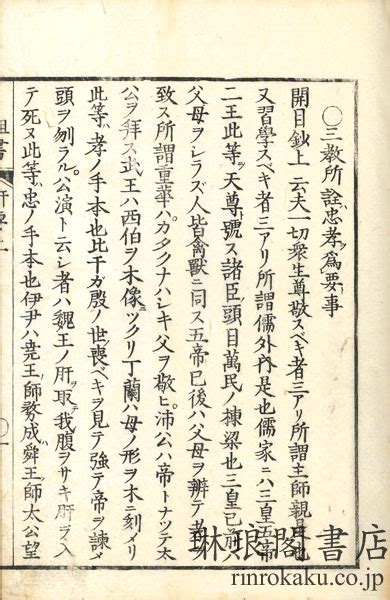 〇三教所詮忠孝爲要事
開目鈔上云夫一切衆生尊敬スベキ者三アリ所謂主師親是也
又習學スベキ者三アリ所謂儒外内是也儒家ニハ三皇五帝
三王此等ヲ天尊ト號ス諸臣ノ頭目萬民ノ棟梁也三皇已前ハ
父母ヲシラズ人皆禽獸ニ同ス五帝已後ハ父母ヲ辨テ孝ヲ
致ス所謂重華ハカタクナハシキ父ヲ敬ヒ沛公ハ帝トナツテ太
公ヲ拜ス武王ハ西伯ヲ木像ニツクリ丁蘭ハ母ノ形ヲ木ニ刻メリ
此等ハ孝ノ手本也比干ガ殷ノ世喪ベキヲ見テ強テ帝ヲ諫メ
頭ヲ刎ラル公演ト云シ者ハ魏王ノ肝ヲ取テ我腹ヲサキ肝ヲ入
テ死ヌ此等ハ忠ノ手本也伊尹ハ堯王ノ師務成ハ舜王ノ師太公望
琳琅閣書店
rinrokaku.co.jp